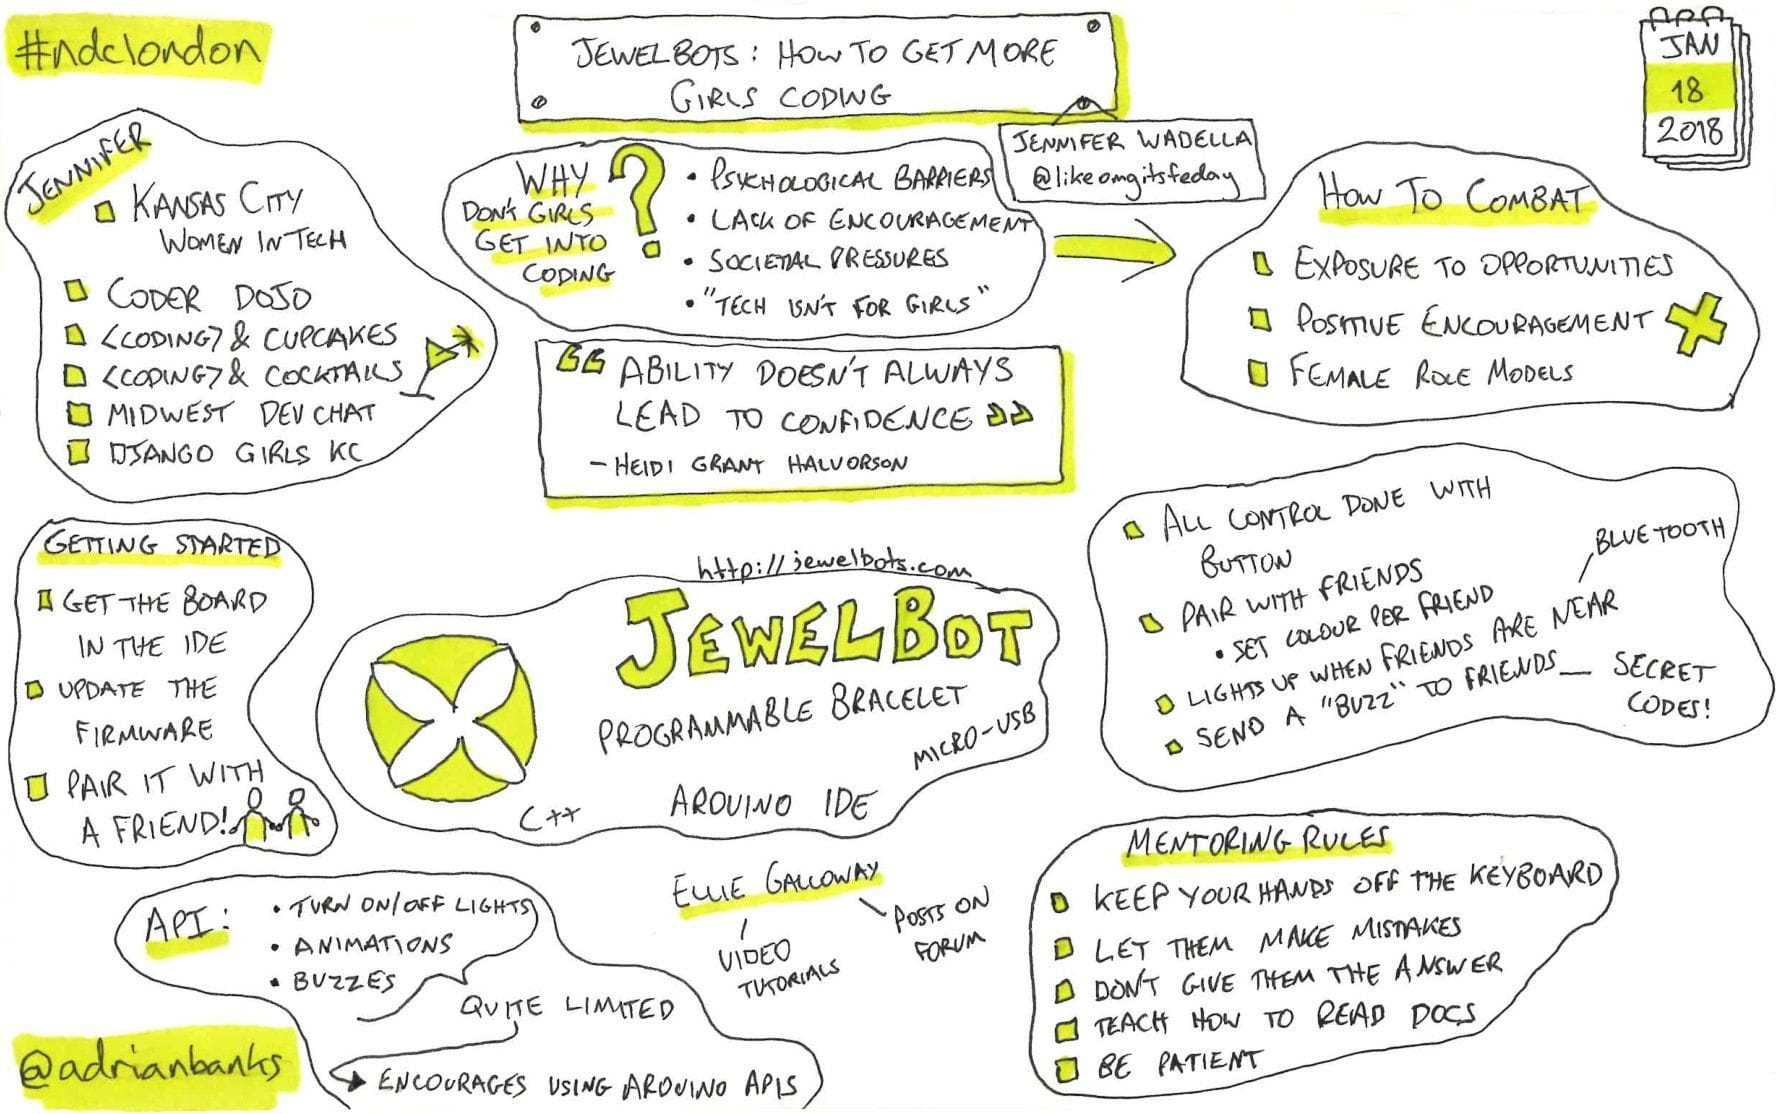 #ndclondon
JEWELBOTS: HOW TO GET MORE
GIRLS CODING
JAN
18
2018
JENNIFER WADELLA
@likeomgitsfeday
JENNIFER
KANSAS CITY
WOMEN IN TECH
CODER DOJO
<CODING> & CUPCAKES
<CODING> & COCKTAILS
MIDWEST DEV CHAT
DJANGO GIRLS KC
WHY
DON'T GIRLS
GET INTO
CODING
?
• PSYCHOLOGICAL BARRIERS
• LACK OF ENCOURAGEMENT
• SOCIETAL PRESSURES
• "TECH ISN'T FOR GIRLS"
HOW TO COMBAT
EXPOSURE TO OPPORTUNITIES
POSITIVE ENCOURAGEMENT
FEMALE ROLE MODELS
"ABILITY DOESN'T ALWAYS
LEAD TO CONFIDENCE"
- HEIDI GRANT HALVORSON
GETTING STARTED
GET THE BOARD
IN THE IDE
UPDATE THE
FIRMWARE
PAIR IT WITH
A FRIEND!
http://jewelbots.com
JEWELBOT
PROGRAMMABLE BRACELET
MICRO-USB
ARDUINO IDE
C++
ALL CONTROL DONE WITH
BUTTON
BLUETOOTH
PAIR WITH FRIENDS
• SET COLOUR PER FRIEND
LIGHTS UP WHEN FRIENDS ARE NEAR
SEND A "BUZZ" TO FRIENDS — SECRET
CODES!
API:
• TURN ON/OFF LIGHTS
• ANIMATIONS
• BUZZES
QUITE LIMITED
ENCOURAGES USING ARDUINO APIS
ELLIE GALLOWAY
VIDEO
TUTORIALS
POSTS ON
FORUM
MENTORING RULES
KEEP YOUR HANDS OFF THE KEYBOARD
LET THEM MAKE MISTAKES
DON'T GIVE THEM THE ANSWER
TEACH HOW TO READ DOCS
BE PATIENT
@adrianbanks